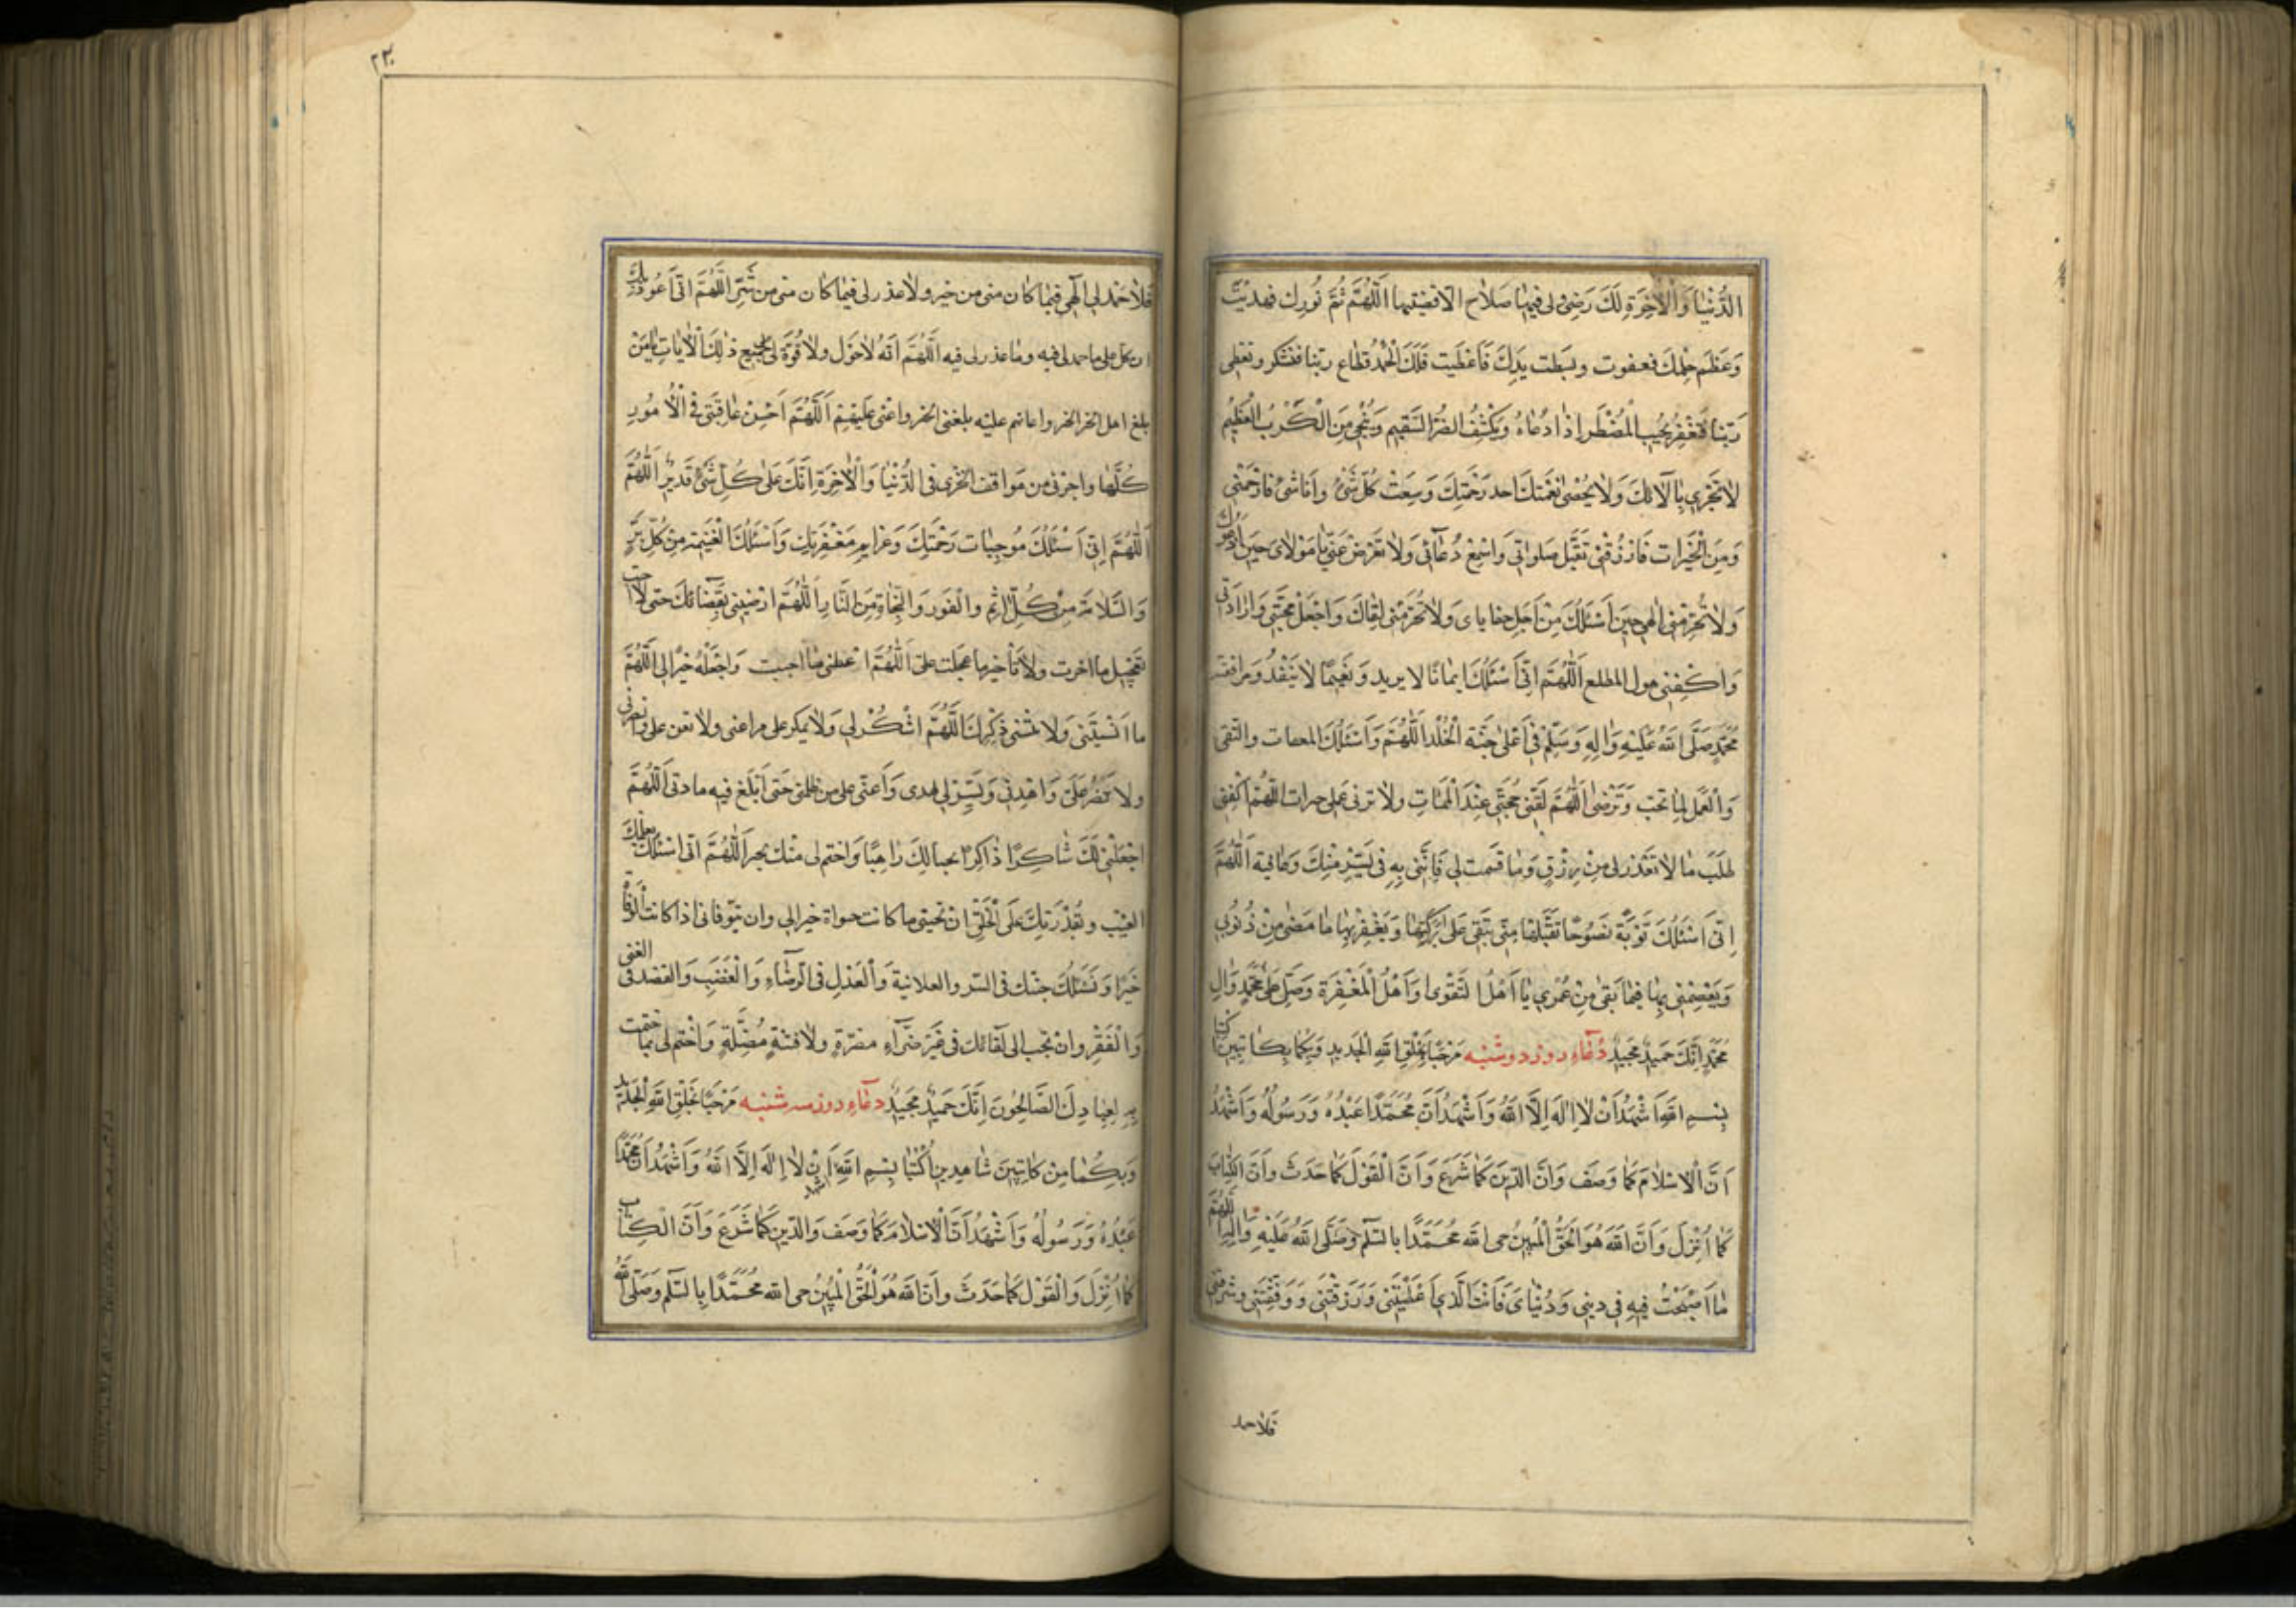 الدُّنْيَا وَالْاٰخِرَةِ لَكَ رَضِىً ولى فيها صَلاٰح الّا قضيتها اَللّٰهُمَّ تَمَّ نُورك فهديْتَ
وَعَظُمَ حِلْمك فعفوت وبَسَطت يدك فَاَعْطَيت فَلَكَ الْحَمْدُ تطاع ربّنا فتشكر وتعصى
رَبّنا فَتَغْفِرُ تُجيب الْمُضْطَر اِذٰا دُعٰاهُ وَيَكْشِفُ الضُّرَّ السَّقيم وَتُنْجى مِنَ الْكَرْبِ الْعَظيم
لاٰ تجْزي بِاٰلاٰئِكَ وَلاٰ يُحْصىٰ نِعْمَتكَ احد رَحْمَتِكَ وَسِعَتْ كُلّ شَىْءٍ وانَا شىءٌ فارْحَمْنى
وَمِنَ الْخَيْرات فَارْزُقْنى تَقَبَّل صَلَواتى وَاسْمِعْ دُعٰائى وَلاٰ تُعْرِضْ عَنّي يٰا مَوْلاٰى حينَ اَدْعُوك
وَلاٰ تُحْرِمْنى اِلٰهى حينَ اَسْئَلُكَ مِنْ اَجَلِ خطاياى وَلاٰ تَحْرِمْنى لِقٰاكَ وَاجْعَلْ مَحَبَّتى وَاِرٰادَتى
وَاكْفِنى هول المطلع اَللّٰهُمَّ اِنّى اَسْئَلُكَ اِيمٰانًا لا يريد وَنَعيمًا لاٰ يَنْفَدُ وَمرافقة
مُحَمَّدٍ صَلَّى اللهُ عَلَيْهِ وَاٰلِهِ وَسَلَّمْ في اَعْلىٰ جَنّة الْخُلْد اَللّٰهُمَّ وَاَسْئَلُكَ العفاف والتّقى
وَالْعَمَل لِمٰا تُحبّ وَتَرْضىٰ اَللّٰهُمَّ لَقِّنى حُجَّتى عِنْدَ الْمَمٰاتِ ولاٰ ترنى عملى حسرات اَللّٰهُمَّ اكْفِنى
طَلَبَ مٰا لاٰ تُقَدّر لى مِنْ رِزْقٍ وَمٰا قَسَمت لى فَاْتِنى بِهِ فى يُسْر مِنْك وَعافية اَللّٰهُمَّ
اِنّى اَسْئَلُكَ تَوْبَةً نَصُوحًا تَقَبَّلها مِنّى تَبْقى عَلىَّ بَرَكَتِهٰا وَتَغْفِر بِهٰا مٰا مَضىٰ مِنْ ذُنُوبى
وَتَعْصِمُنى بِهٰا فيمٰا بَقىَ مِنْ عُمْري يٰا اَهْلَ التَّقْوىٰ وَاَهْلَ الْمَغْفِرَة وَصَلِّ عَلىٰ مُحَمَّدٍ وَاٰلِ
مُحَمَّدٍ اِنَّكَ حَميدٌ مَجيدٌ دُعٰاءِ روز دوشنبه مَرْحَبًا بِخَلْقِ اللهِ الْجَديدِ وَبِكُمٰا بِكٰاتِبين اكتبا
بِسْمِ اللهِ اَشْهَدُ اَنْ لاٰ اِلٰهَ اِلاَّ اللهُ وَاَشْهَدُ اَنَّ مُحَمَّدًا عَبْدُهُ وَرَسُولُهُ وَاَشْهَدُ
اَنَّ الْاِسْلاٰمَ كَمٰا وَصَف وَانَّ الدّينَ كَمٰا شَرَعَ وَاَنَّ الْقَوْلَ كَمٰا حَدَثَ وَاَنَّ الْكِتٰابَ
كَمٰا اُنْزِلَ وَاَنَّ اللهَ هُوَ الْحَقُّ الْمُبينُ حى الله مُحَمَّدًا بالسَّلٰم وَصَلَّى اللهُ عَلَيْهِ وَاٰلِهِ اَللّٰهُمَّ
مٰا اَصْبَحْتُ فيهِ في ديني وَدُنْيٰاىَ فَانْتَ الَّذي اَعْطَيْتَنى وَرَزَقْتَنى وَوَفَّقْتَنى وسترتنى
فلاٰ حمد
٢٣٠
فَلاٰ حَمْدَ لى اِلٰهى فيمٰا كٰان منى من خير ولاٰ عذر لى فيمٰا كٰان منى من شَرّ اَللّٰهُمَّ اِنّى اَعُوذُ بِكَ
ان اتكل على ما حمد لى فيه ومٰا عذر لى فيه اَللّٰهُمَّ اَنَّهُ لاٰ حَوْلَ ولاٰ قُوَّةَ لى بجميع ذٰلِكَ الاٰيات يٰا مَنْ
بلغ اهل الخير الخير واعانهم عليْه بلغنى الخير واعنى عليهم اَللّٰهُمَّ اَحْسِنْ عٰاقِبَتى فى الْاُمُورِ
كُلّهٰا واجِرْنى من مَواقف الخزى فى الدُّنْيٰا وَالْاٰخِرَةِ اِنَّكَ عَلىٰ كُلِّ شَىْءٍ قَديرٌ اَللّٰهُمَّ
اَللّٰهُمَّ اِنّى اَسْئَلُكَ مُوجِبٰات رَحْمَتِكَ وَعزايم مَغْفِرَتِك وَاَسْئَلُكَ الْغَنيمة مِنْ كُلّ بِرٍّ
وَالسَّلاٰمَةَ مِنْ كُلّ اِثمٍ والْفَوز وَالنَّجٰاةَ مِنَ النّٰارِ اَللّٰهُمَّ ارْضِني بِقَضٰائِكَ حتى لاٰ احب
تعجيل ما اخرت ولاٰ تأخير ما عجلت على اَللّٰهُمَّ اعطنى مٰا احببت وَاجْعَلْهُ خيرًا لى اَللّٰهُمَّ
ما اَنْسيتَنى وَلاٰ تُنْسنى ذِكْرك اَللّٰهُمَّ اشْكُرْ لى وَلاٰ تمكر على واعنى ولاٰ تعن على وانصرنى
ولاٰ تَنْصُرْ عَلَىّ وَاهْدِنى وَيَسِّرْ لى الهدى وَاَعِنّى على من ظلمنى حَتّى اَبْلُغ فيه مٰاربى اَللّٰهُمَّ
اجْعَلْنى لَكَ شٰاكِرًا ذٰاكِرًا محبا لك رٰاهِبًا وَاختم لى منك بخير اَللّٰهُمَّ انّى اسْئَلُكَ بعلمك
الغيْب وبقُدْرَتِكَ عَلَى الْخَلْقِ انْ تحيينى ما كانت الحيوة خيرا لى وان تتوفانى اذا كانت الوفاة
خَيْرًا وَنَسْئَلُكَ خشيتك فى السّر والعلانية وَالْعَدْلِ فى الرّضٰاءِ وَالْغَضَبِ وَالقصد فى الغنى
وَالْفَقْرِ وان تحبب الى لقائك فى غَيْرِ ضَرّٰآءِ مضرّة ولاٰ فتنةٍ مُضِلَّةٍ وَاخْتِم لى بما ختمت
بِهِ لعبٰادِكَ الصّٰالِحُونَ اِنَّكَ حَميدٌ مَجيدٌ دعٰاءِ روز سه شنبه مَرْحَبًا بِخَلْقِ اللهِ الْجَديد
وَبِكُمٰا مِنْ كاتِبَيْنَ شٰاهِدين اُكْتُبٰا بِسْمِ اللهِ اشهد اَنْ لاٰ اِلٰهَ اِلاَّ اللهُ وَاَشْهَدُ اَنَّ مُحَمَّدًا
عَبْدُهُ وَرَسُولُهُ وَاَشْهَدُ اَنَّ الْاِسْلاٰمَ كَمٰا وَصَف وَالدّين كَمٰا شَرَعَ وَاَنَّ الْكِتٰاب
كَمٰا اُنْزِلَ وَالْقَوْل كَمٰا حَدَثَ وانَّ الله هُوَ الْحَقُّ الْمُبينُ حى الله مُحَمَّدًا بِالسَّلٰم وَصَلَّى اللهُ